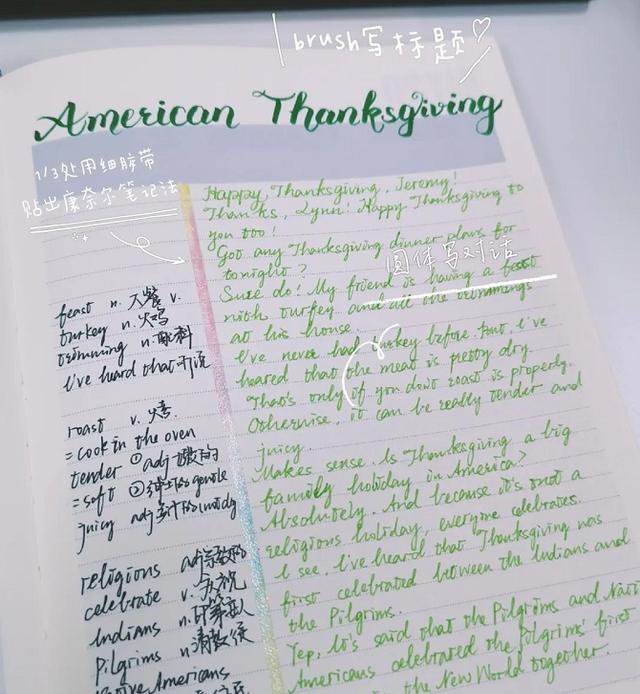 brush写标题
American Thanksgiving
1/3处用细胶带
贴出康奈尔笔记法
圆体写对话
Happy Thanksgiving, Jeremy!
Thanks, Lynn! Happy Thanksgiving to
you too!
Got any Thanksgiving dinner plans for
tonight?
Sure do! My friend is having a feast
with turkey and all the trimmings
at his house.
I've never had turkey before. But, I've
heard that the meat is pretty dry.
That's only if you don't roast is properly.
Otherwise, it can be really tender and
juicy.
Makes sense. Is Thanksgiving a big
family holiday in America?
Absolutely. And because it's not a
religious holiday, everyone celebrates.
I see. I've heard that Thanksgiving was
first celebrated between the Indians and
the Pilgrims.
Yep, It's said that the Pilgrims and Nati
Americans celebrated the Pilgrims' first
the New World together.
feast n. 大餐 v.
turkey n. 火鸡
trimming n. 配料
I've heard that
roast v. 烤
= cook in the oven
tender ① adj 嫩的
= soft ② gentle
juicy adj
religions adj 宗教的
celebrate v. 庆祝
Indians n. 印第安人
Pilgrims n. 清教徒
Native Americans